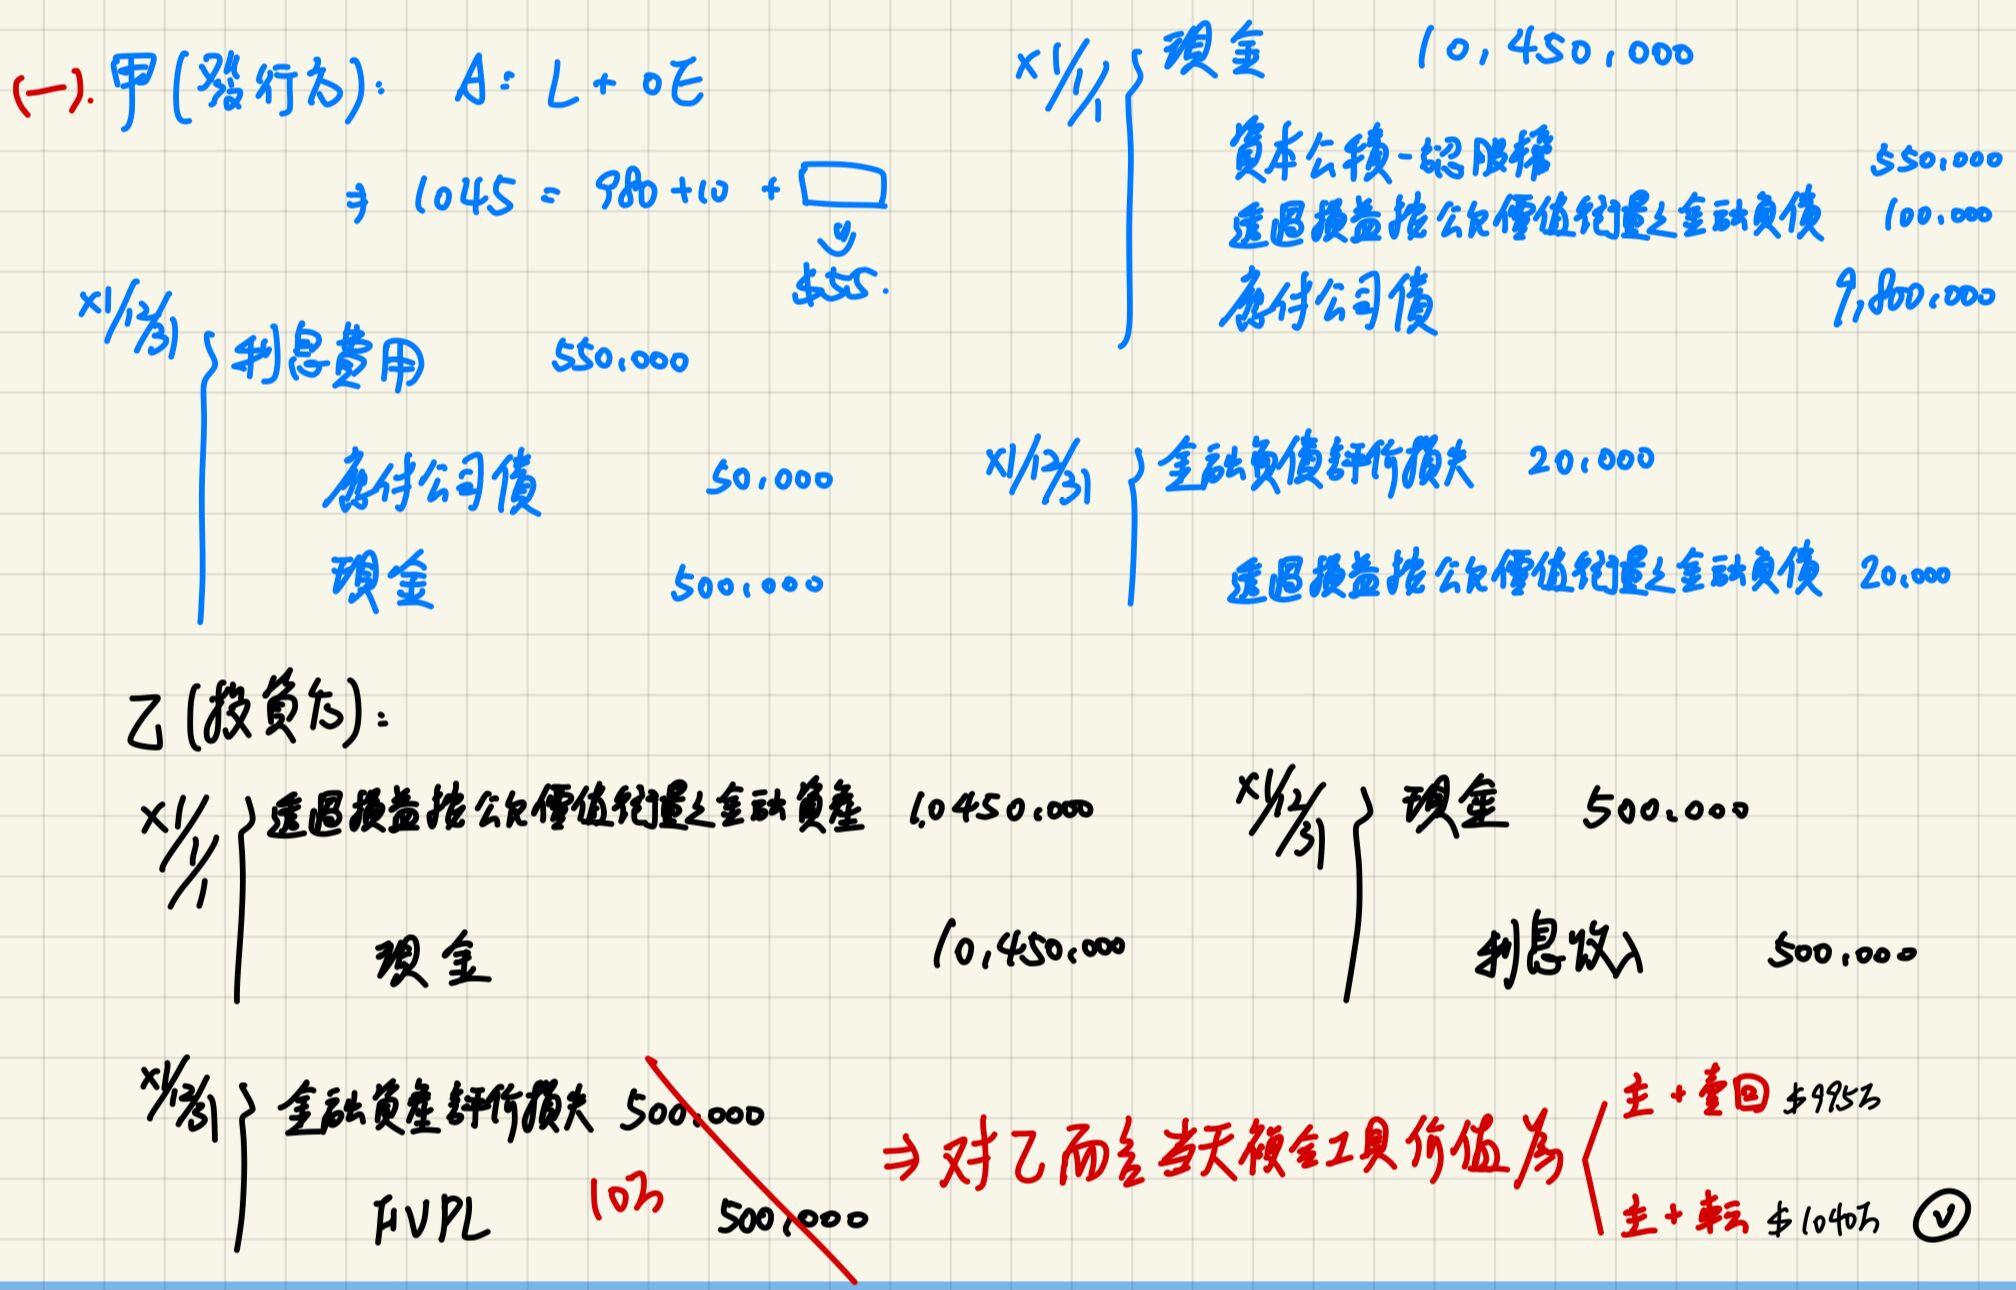 (一). 甲(發行方): A: L + OE
⇒ 1045 = 980+10 +
$55.
X1/1/1 現金 10,450,000
資本公積-認股權 550,000
透過損益按公允價值衡量之金融負債 100,000
應付公司債 9,800,000
X1/12/31 利息費用 550,000
應付公司債 50,000
現金 500,000
X1/12/31 金融負債評价損失 20,000
透過損益按公允價值衡量之金融負債 20,000
乙(投資方):
X1/1/1 透過損益按公允價值衡量之金融資產 10450,000
現金 10,450,000
X1/12/31 現金 500,000
利息收入 500,000
X1/12/31 金融資產評价損失 500,000
FVPL 10万 500,000
⇒ 对乙而言当天複合工具价值為
主 + 賣回 $995万
主 + 転 $1040万 V